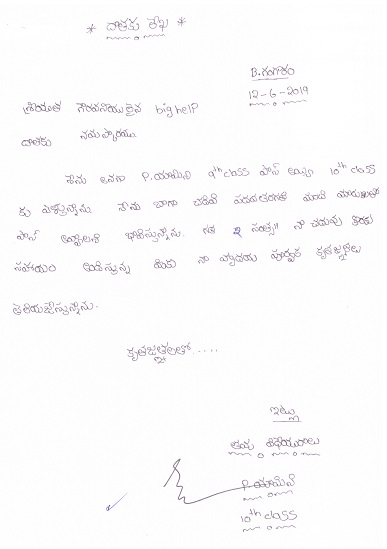 * దాతకు లేఖ *
B.గంగారం
12-6-2019
శ్రీయుత గౌరవనీయులైన big help
దాతకు నమస్కారములు.
నేను అనగా P.యామిని 9th class పాస్ అయ్యి 10th class
కు వెళ్తున్నాను. నేను బాగా చదివి పదవతరగతి మంచి మార్కులతో
పాస్ అవ్వాలని భావిస్తున్నాను. గత 2 సంత్స॥ నా చదువు కొరకు
సహాయం అందిస్తున్న మీకు నా హృదయ పూర్వక కృతజ్ఞతలు
తెలియజేస్తున్నాను.
కృతజ్ఞతలతో.....
ఇట్లు
తమ విధేయురాలు
P.యామిని
10th class